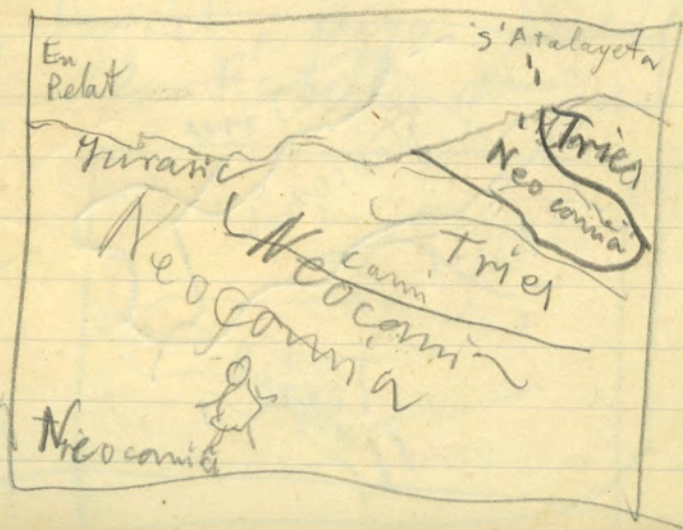 En
Pelat
s'Atalayeta
Juràsic
Trias
Neocomià
Trias
Neocomià
cami
Neocomià
Neocomià